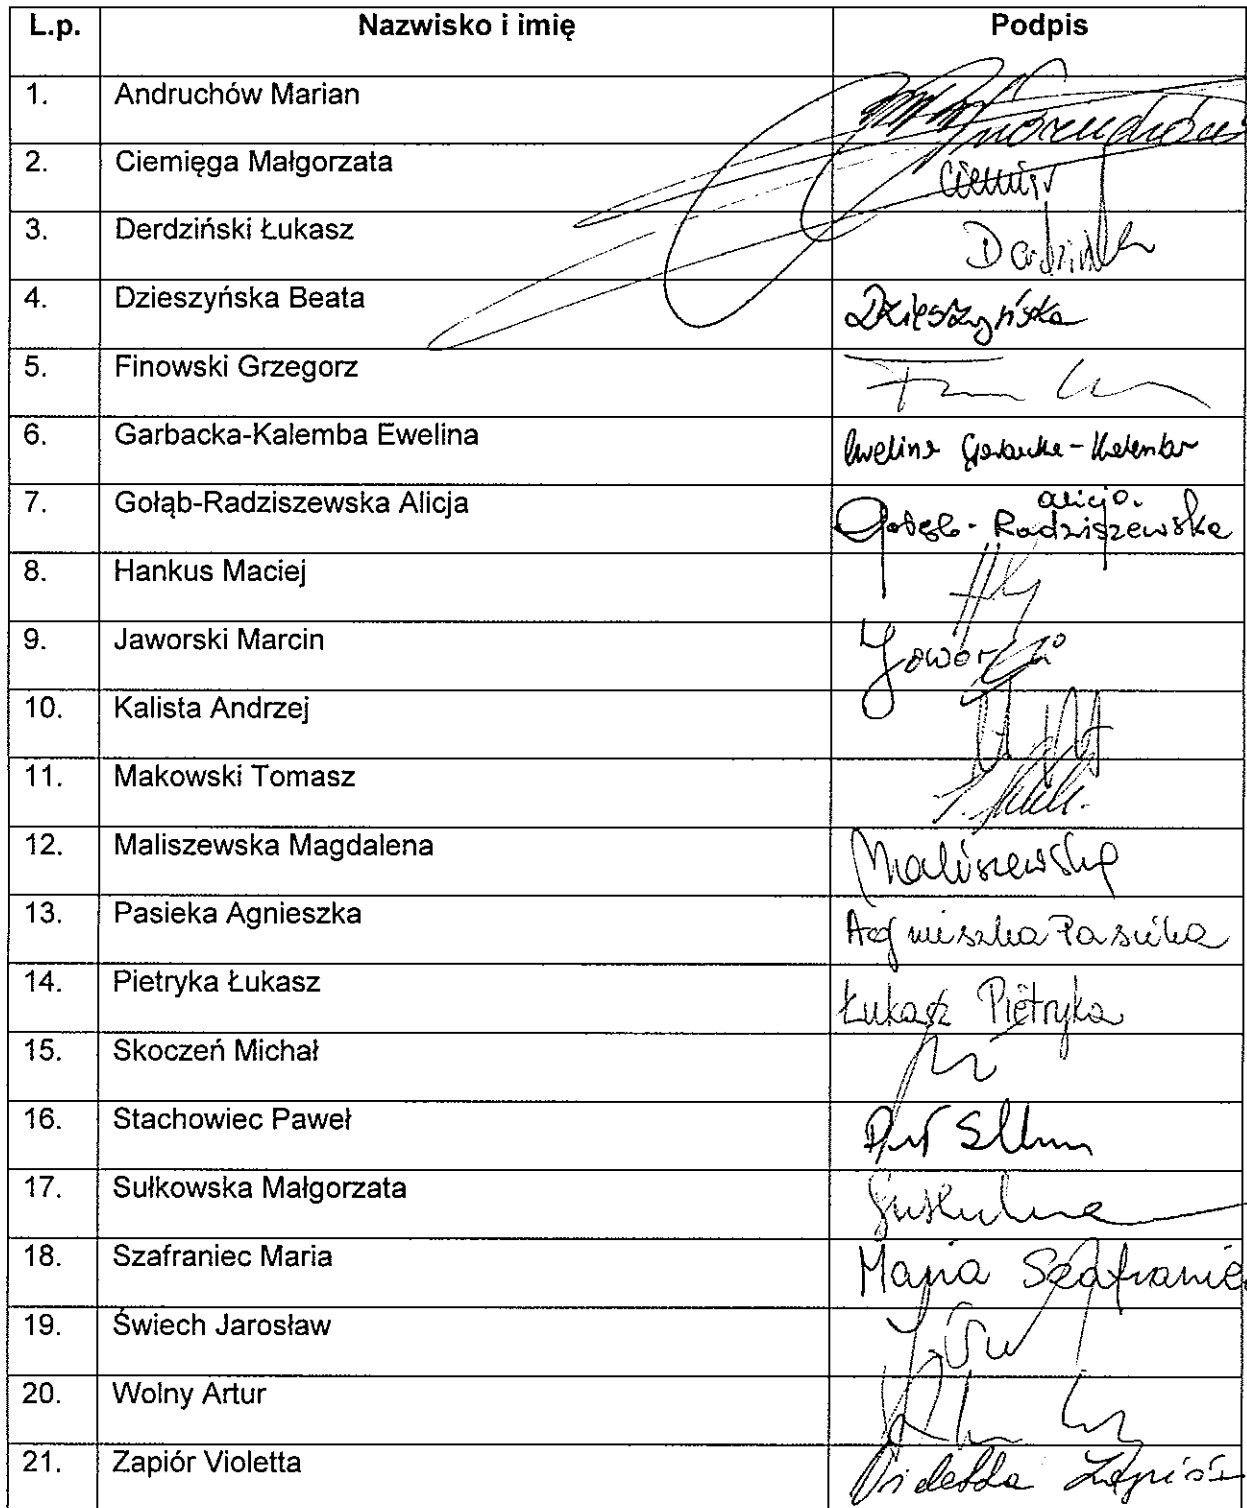 L.p. Nazwisko i imię Podpis
1. Andruchów Marian
2. Ciemięga Małgorzata
3. Derdziński Łukasz
4. Dzieszyńska Beata Dzieszyńska
5. Finowski Grzegorz
6. Garbacka-Kalemba Ewelina Ewelina Garbacka-Kalemba
7. Gołąb-Radziszewska Alicja Alicja Gołąb-Radziszewska
8. Hankus Maciej
9. Jaworski Marcin
10. Kalista Andrzej
11. Makowski Tomasz
12. Maliszewska Magdalena Maliszewska
13. Pasieka Agnieszka Agnieszka Pasieka
14. Pietryka Łukasz Łukasz Pietryka
15. Skoczeń Michał
16. Stachowiec Paweł
17. Sułkowska Małgorzata
18. Szafraniec Maria Maria Szafraniec
19. Świech Jarosław
20. Wolny Artur
21. Zapiór Violetta Violetta Zapiór